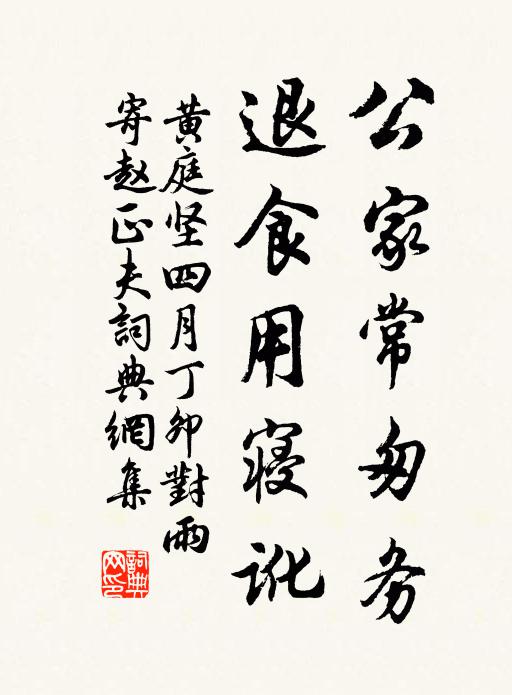 公家常匆务
退食用寝讹
黄庭坚四月丁卯對雨
寄赵正夫詞典網集
詞典網印